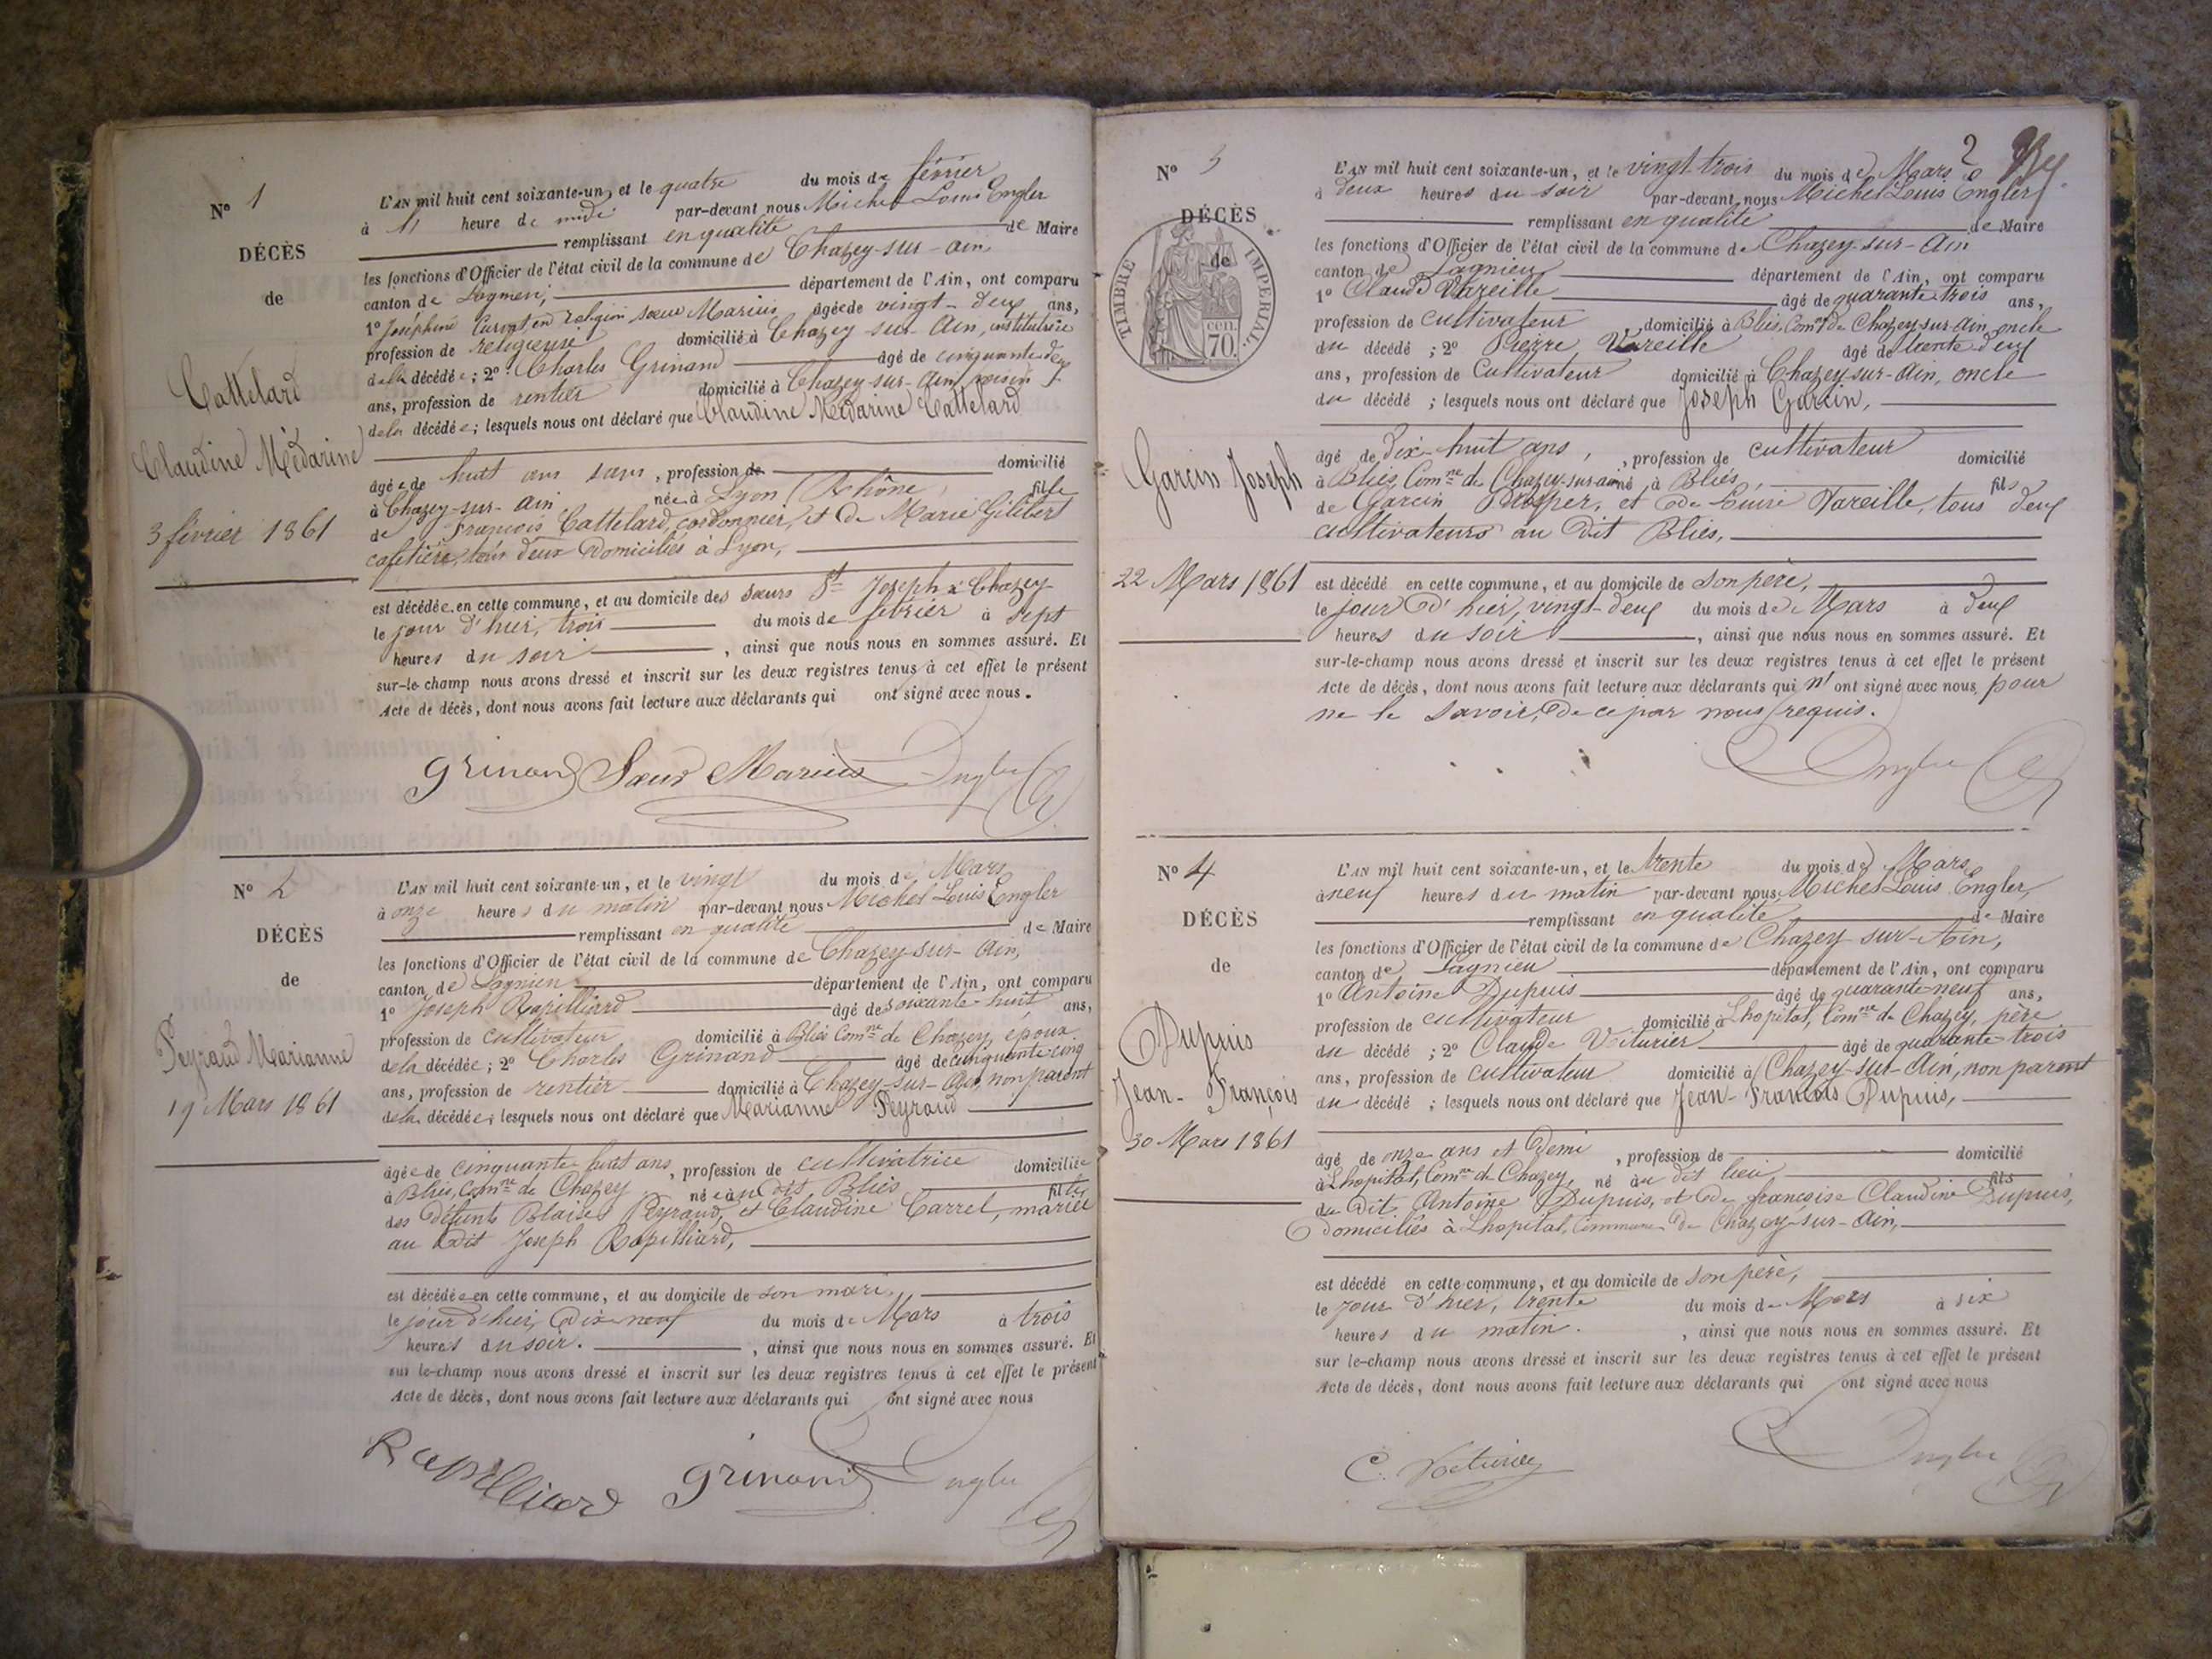 N° 1
DÉCÈS
de
Cattelard
Claudine Médarine
3 février 1861
L'AN mil huit cent soixante-un, et le quatre du mois de février
à heure de midi par-devant nous Michel Louis Engler
remplissant en qualité de Maire
les fonctions d'Officier de l'état civil de la commune de Chazey-sur-Ain
canton de Lagnieu, département de l'Ain, ont comparu
1° Joséphine en religion sœur Marius âgée de vingt-deux ans,
profession de religieuse domicilié à Chazey-sur-Ain, institutrice
de la décédée; 2° Charles Grinand âgé de cinquante
ans, profession de rentier domicilié à Chazey-sur-Ain, voisin
de la décédée; lesquels nous ont déclaré que Claudine Médarine Cattelard
âgée de huit ans, profession de domicilié
à Chazey-sur-Ain née à Lyon (Rhône) fille
de François Cattelard, cordonnier, et de Marie Gilibert
cafetière, tous deux domiciliés à Lyon,
est décédée en cette commune, et au domicile des sœurs St Joseph à Chazey
le jour d'hier, trois du mois de février à sept
heures du soir, ainsi que nous nous en sommes assuré. Et
sur-le-champ nous avons dressé et inscrit sur les deux registres tenus à cet effet le présent
Acte de décès, dont nous avons fait lecture aux déclarants qui ont signé avec nous.
Grinand Sœur Marius Engler
N° 2
DÉCÈS
de
Peyraud Marianne
19 Mars 1861
L'AN mil huit cent soixante-un, et le vingt du mois de Mars
à onze heures du matin par-devant nous Michel Louis Engler
remplissant en qualité de Maire
les fonctions d'Officier de l'état civil de la commune de Chazey-sur-Ain,
canton de Lagnieu département de l'Ain, ont comparu
1° Joseph Rapilliard âgé de soixante-huit ans,
profession de cultivateur domicilié à Bliés Comne de Chazey, époux
de la décédée; 2° Charles Grinand âgé de cinquante-cinq
ans, profession de rentier domicilié à Chazey-sur-Ain, non parent
de la décédée; lesquels nous ont déclaré que Marianne Peyraud
âgée de cinquante-huit ans, profession de cultivatrice domiciliée
à Bliés, Comne de Chazey née au dit Bliés fille
des défunts Blaise Peyraud, et Claudine Carrel, mariée
au dit Joseph Rapilliard,
est décédée en cette commune, et au domicile de son mari,
le jour d'hier, dix-neuf du mois de Mars à trois
heures du soir., ainsi que nous nous en sommes assuré. Et
sur le-champ nous avons dressé et inscrit sur les deux registres tenus à cet effet le présent
Acte de décès, dont nous avons fait lecture aux déclarants qui ont signé avec nous
Rapilliard Grinand Engler
2
N° 3
DÉCÈS
de
TIMBRE IMPÉRIAL
70 cen.
Garcin Joseph
22 Mars 1861
L'AN mil huit cent soixante-un, et le vingt-trois du mois de Mars
à deux heures du soir par-devant nous Michel Louis Engler
remplissant en qualité de Maire
les fonctions d'Officier de l'état civil de la commune de Chazey-sur-Ain
canton de Lagnieu département de l'Ain, ont comparu
1° Claude Vareille âgé de quarante-trois ans,
profession de cultivateur domicilié à Bliés, Comne de Chazey-sur-Ain, oncle
du décédé; 2° Pierre Vareille âgé de trente-deux
ans, profession de Cultivateur domicilié à Chazey-sur-Ain, oncle
du décédé; lesquels nous ont déclaré que Joseph Garcin,
âgé de dix-huit ans, profession de cultivateur domicilié
à Bliés, Comne de Chazey-sur-ain né à Bliés, fils
de Garcin Prosper, et de Louise Vareille, tous deux
cultivateurs au dit Bliés,
est décédé en cette commune, et au domicile de son père,
le jour d'hier, vingt-deux du mois de Mars à deux
heures du soir, ainsi que nous nous en sommes assuré. Et
sur-le-champ nous avons dressé et inscrit sur les deux registres tenus à cet effet le présent
Acte de décès, dont nous avons fait lecture aux déclarants qui n'ont signé avec nous pour
ne le savoir, de ce par nous requis.
Engler
N° 4
DÉCÈS
de
Dupuis
Jean-François
30 Mars 1861
L'AN mil huit cent soixante-un, et le trente du mois de Mars
à neuf heures du matin par-devant nous Michel Louis Engler,
remplissant en qualité de Maire
les fonctions d'Officier de l'état civil de la commune de Chazey-sur-Ain,
canton de Lagnieu département de l'Ain, ont comparu
1° Antoine Dupuis âgé de quarante-neuf ans,
profession de cultivateur domicilié à Lhopital, Comne de Chazey, père
du décédé; 2° Claude Voiturier âgé de quarante-trois
ans, profession de cultivateur domicilié à Chazey-sur-Ain, non parent
du décédé; lesquels nous ont déclaré que Jean-François Dupuis,
âgé de onze ans et demi, profession de domicilié
à Lhopital, Comne de Chazey, né au dit lieu fils
du dit Antoine Dupuis, et de françoise Claudine Dupuis,
domiciliés à Lhopital, Commune de Chazey-sur-Ain,
est décédé en cette commune, et au domicile de son père,
le jour d'hier, trente du mois de Mars à six
heures du matin., ainsi que nous nous en sommes assuré. Et
sur le-champ nous avons dressé et inscrit sur les deux registres tenus à cet effet le présent
Acte de décès, dont nous avons fait lecture aux déclarants qui ont signé avec nous
C. Voiturier Engler